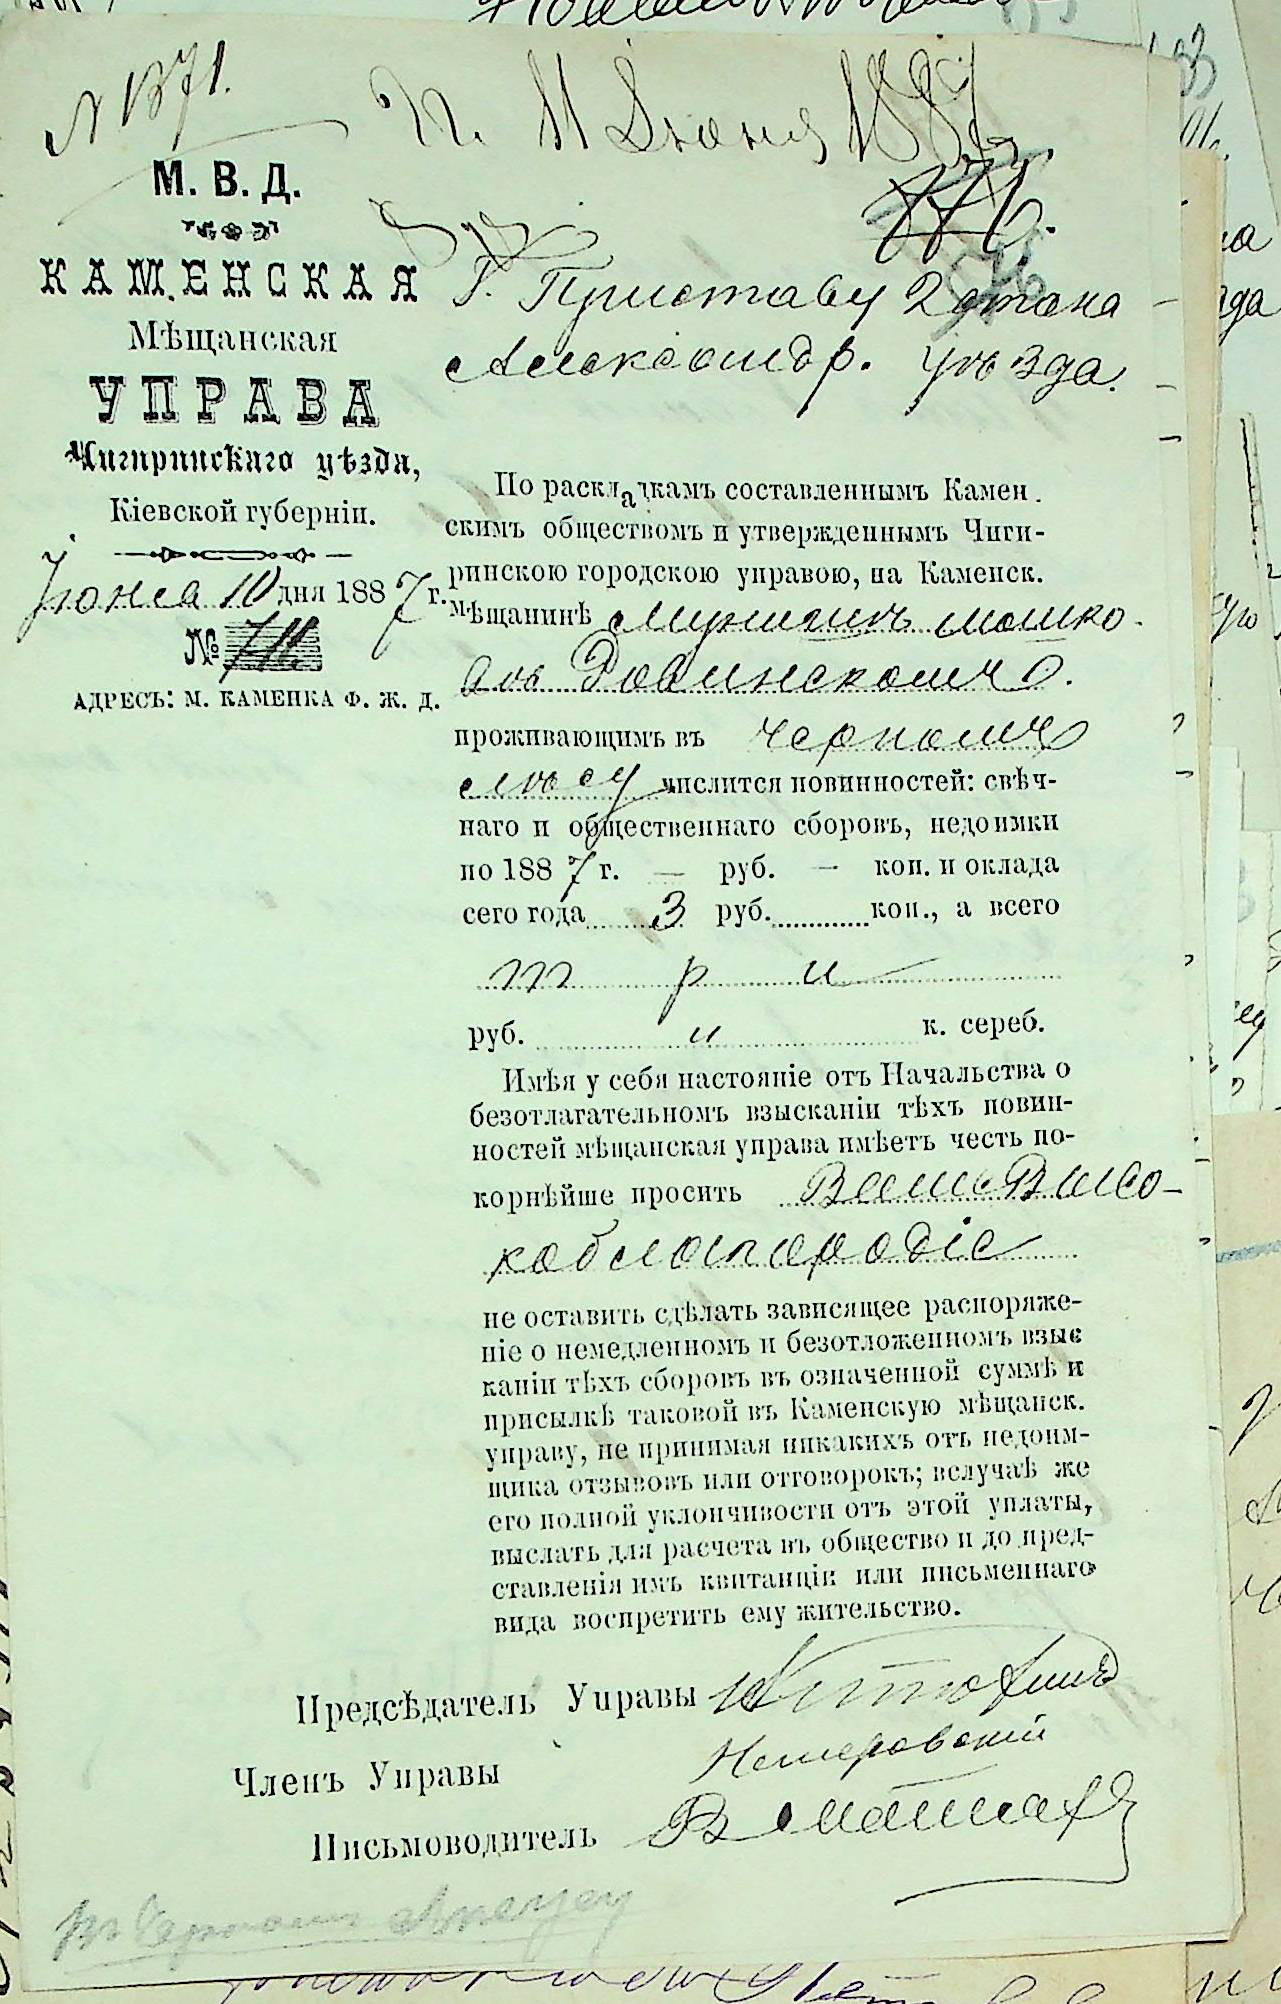 N 1371.
П. 11 Іюня 1887 г.
М. В. Д.
КАМЕНСКАЯ
Мѣщанская
УПРАВА
Чигиринскаго уѣзда,
Кіевской губерніи.
Іюня 10 дня 1887 г.
№ 711.
АДРЕСЪ: М. КАМЕНКА Ф. Ж. Д.
Г. Приставу 2 стана
Александр. уѣзда.
По раскладкамъ составленнымъ Камен.
скимъ обществомъ и утвержденнымъ Чиги-
ринскою городскою управою, на Каменск.
мѣщанинѣ Мошко-
вѣ
проживающимъ въ Черномъ
лѣсу числится повинностей: свѣч-
наго и общественнаго сборовъ, недоимки
по 1887 г. — руб. — коп. и оклада
сего года 3 руб. коп., а всего
три
руб. и к. сереб.
Имѣя у себя настояніе отъ Начальства о
безотлагательномъ взысканіи тѣхъ повин-
ностей мѣщанская управа имѣетъ честь по-
корнѣйше просить Ваше Высо-
коблагородіе
не оставить сдѣлать зависящее распоряже-
ніе о немедленномъ и безотложенномъ взыс
каніи тѣхъ сборовъ въ означенной суммѣ и
присылкѣ таковой въ Каменскую мѣщанск.
управу, не принимая никакихъ отъ недоим-
щика отзывовъ или отговорокъ; вслучаѣ же
его полной уклончивости отъ этой уплаты,
выслать для расчета въ общество и до пред-
ставленія имъ квитанціи или письменнаго
вида воспретить ему жительство.
Предсѣдатель Управы
Членъ Управы Немеровскій
Письмоводитель В